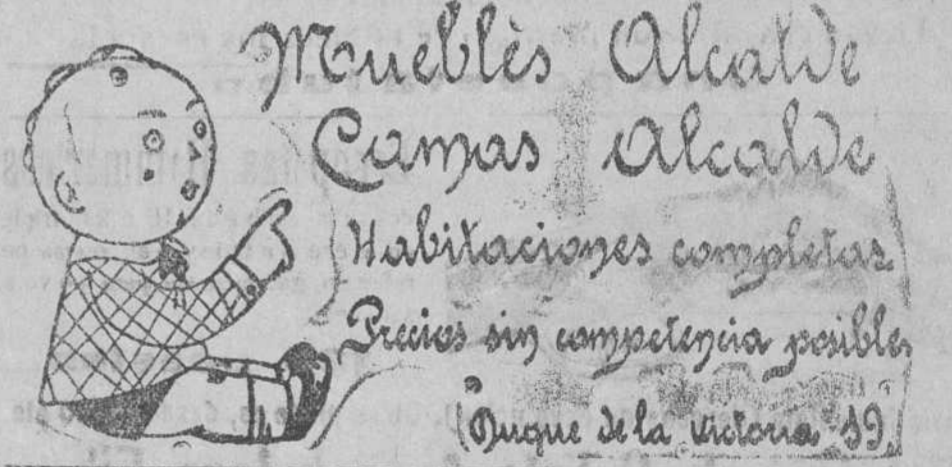 Mueblès Alcalde
Camas Alcalde
Habitaciones completas
Precios sin competencia posible
Duque de la Victoria